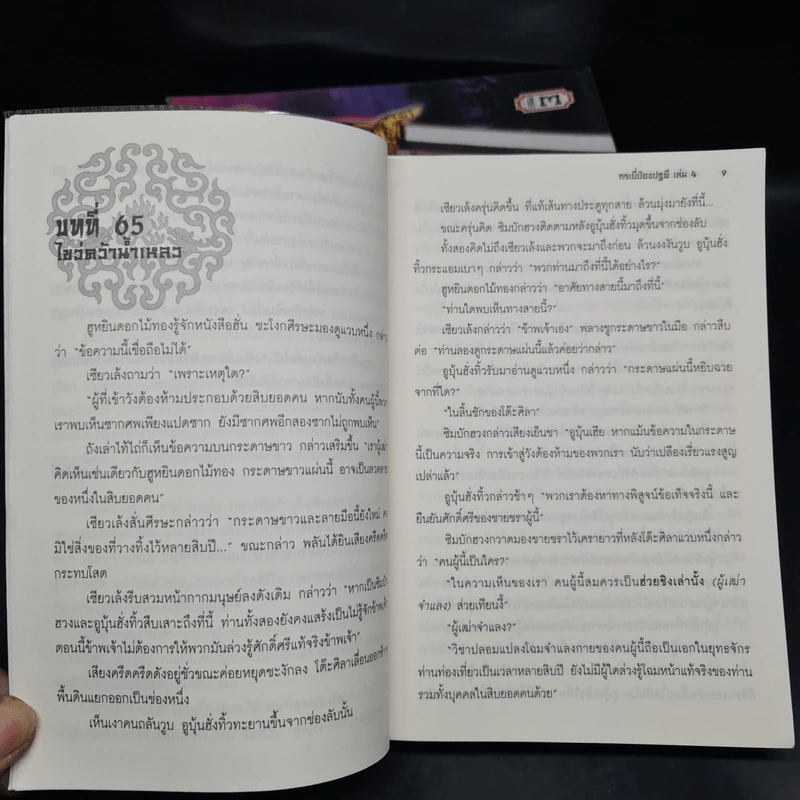 บทที่ 65
ไขว่คว้าน้ำเหลว
ฮูหยินดอกไม้ทองรู้จักหนังสือฮั่น ชะโงกศีรษะมองดูแวบหนึ่ง กล่าว
ว่า “ข้อความนี้เชื่อถือไม่ได้”
เซียวเล้งถามว่า “เพราะเหตุใด?”
“ผู้ที่เข้าวังต้องห้ามประกอบด้วยสิบยอดคน หากนับทั้งคนผู้นี้พวก
เราพบเห็นซากศพเพียงแปดซาก ยังมีซากศพอีกสองซากไม่ถูกพบเห็น”
ถังเล่าไท้ไถ่ก็เห็นข้อความบนกระดาษขาว กล่าวเสริมขึ้น “เราผู้เฒ่า
คิดเห็นเช่นเดียวกับฮูหยินดอกไม้ทอง กระดาษขาวแผ่นนี้ อาจเป็นลวดลาย
ของหนึ่งในสิบยอดคน”
เซียวเล้งสั่นศีรษะกล่าวว่า “กระดาษขาวและลายมือนี้ยังใหม่
มิใช่สิ่งของที่วางทิ้งไว้หลายสิบปี...” ขณะกล่าว พลันได้ยินเสียงครืดครืด
กระทบโสต
เซียวเล้งรีบสวมหน้ากากมนุษย์ลงดังเดิม กล่าวว่า “หากเป็นซิมบัก
ฮวงและอูบุ้นฮั่งทิ้วสืบเสาะถึงที่นี้ ท่านทั้งสองยังคงแสร้งเป็นไม่รู้จักข้าพเจ้า
ตอนนี้ข้าพเจ้าไม่ต้องการให้พวกมันล่วงรู้ศักดิ์ศรีแท้จริงข้าพเจ้า”
เสียงครืดครืดดังอยู่ชั่วขณะค่อยหยุดชะงักลง โต๊ะศิลาเลื่อนออกข้าง
พื้นดินแยกออกเป็นช่องหนึ่ง
เห็นเงาคนถลันวูบ อูบุ้นฮั่งทิ้วทะยานขึ้นจากช่องลับนั้น
กระบี่ป้องปฐพี เล่ม 4 9
เซียวเล้งครุ่นคิดขึ้น ที่แท้เส้นทางประตูทุกสาย ล้วนมุ่งมายังที่นี้...
ขณะครุ่นคิด ซิมบักฮวงติดตามหลังอูบุ้นฮั่งทิ้วมุดขึ้นจากช่องลับ
ทั้งสองคิดไม่ถึงเซียวเล้งและพวกจะมาถึงก่อน ล้วนงงงันวูบ อูบุ้นฮั่
ทิ้วกระแอมเบาๆ กล่าวว่า “พวกท่านมาถึงที่นี้ได้อย่างไร?”
ฮูหยินดอกไม้ทองกล่าวว่า “อาศัยทางสายนี้มาถึงที่นี้”
“ท่านใดพบเห็นทางสายนี้?”
เซียวเล้งกล่าวว่า “ข้าพเจ้าเอง” พลางชูกระดาษขาวในมือ กล่าวสืบ
ต่อ “ท่านลองดูกระดาษแผ่นนี้แล้วค่อยว่ากล่าว”
อูบุ้นฮั่งทิ้วรับมาอ่านดูแวบหนึ่ง กล่าวว่า “กระดาษแผ่นนี้หยิบฉวย
จากที่ใด?”
“ในลิ้นชักของโต๊ะศิลา”
ซิมบักฮวงกล่าวเสียงเย็นชา “อูบุ้นเฮีย หากแม้นข้อความในกระดาษ
นี้เป็นความจริง การเข้าสู่วังต้องห้ามของพวกเรา นับว่าเปลืองเรี่ยวแรงสูญ
เปล่าแล้ว”
อูบุ้นฮั่งทิ้วกล่าวช้าๆ “พวกเราต้องหาทางพิสูจน์ข้อเท็จจริงนี้ และ
ยืนยันศักดิ์ศรีของชายชราผู้นี้”
ซิมบักฮวงกวาดมองชายชราไว้เครายาวที่หลังโต๊ะศิลาแวบหนึ่งกล่าว
ว่า “คนผู้นี้เป็นใคร?”
“ในความเห็นของเรา คนผู้นี้สมควรเป็นฮ่วยชิงเล่านั้ง (ผู้เฒ่า
จำแลง) ส่วยเทียนงี้”
“ผู้เฒ่าจำแลง?”
“วิชาปลอมแปลงโฉมจำแลงกายของคนผู้นี้ถือเป็นเอกในยุทธจักร
ท่านท่องเที่ยวเป็นเวลาหลายสิบปี ยังไม่มีผู้ใดล่วงรู้โฉมหน้าแท้จริงของท่าน
รวมทั้งบุคคลในสิบยอดคนด้วย”